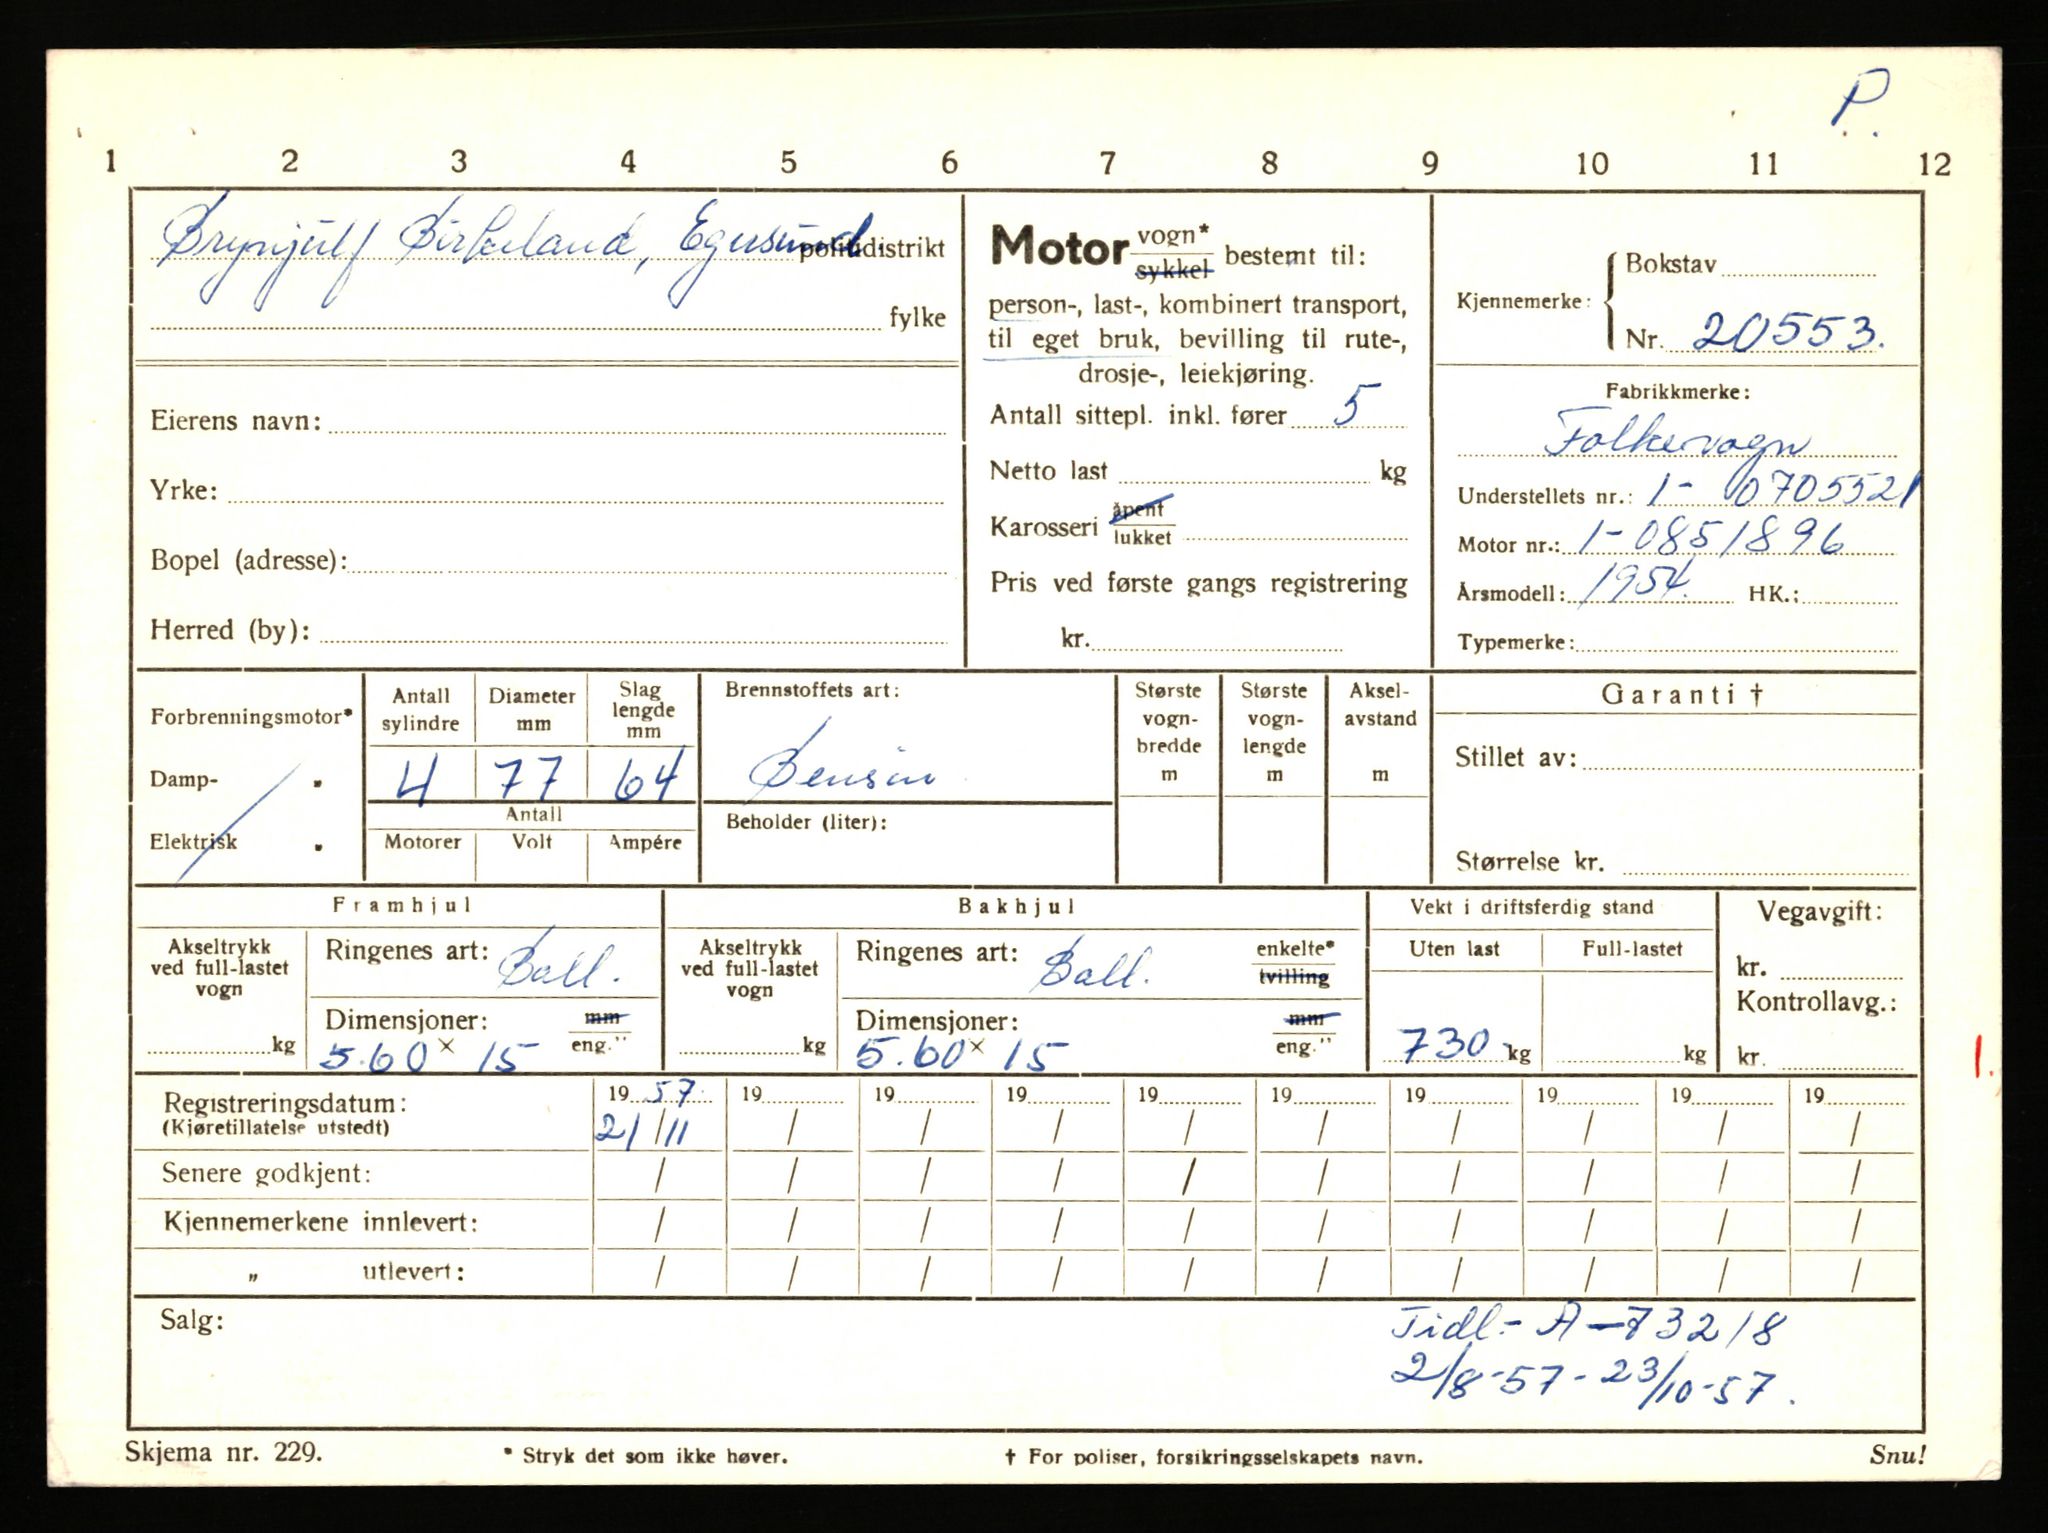 P.
1 2 3 4 5 6 7 8 9 10 11 12
Brynjulf Birkeland, Egersund.
politidistrikt
fylke
Eierens navn:
Yrke:
Bopel (adresse):
Herred (by):
Motor vogn* sykkel bestemt til:
person-, last-, kombinert transport,
til eget bruk, bevilling til rute-,
drosje-, leiekjøring.
Antall sittepl. inkl. fører 5
Netto last kg
Karosseri åpent lukket
Pris ved første gangs registrering
kr.
Kjennemerke: Bokstav
Nr. 20553.
Fabrikkmerke:
Folkevogn
Understellets nr.: 1- 0705521
Motor nr.: 1-0851896
Årsmodell: 1954. HK.:
Typemerke:
Forbrenningsmotor*
Damp- "
Elektrisk "
Antall sylindre
Diameter mm
Slag lengde mm
4 77 64
Antall
Motorer Volt Ampére
Brennstoffets art:
Bensin
Beholder (liter):
Største vogn- bredde m
Største vogn- lengde m
Aksel- avstand m
Garanti †
Stillet av:
Størrelse kr.
Framhjul
Akseltrykk ved full-lastet vogn
kg
Ringenes art: Ball.
Dimensjoner: mm eng."
5.60 x 15
Bakhjul
Akseltrykk ved full-lastet vogn
kg
Ringenes art: Ball. enkelte* tvilling
Dimensjoner: mm eng."
5.60 x 15
Vekt i driftsferdig stand
Uten last Full-lastet
730 kg kg
Vegavgift:
kr.
Kontrollavg.:
kr.
1.
Registreringsdatum: 19 57. 19 19 19 19 19 19 19 19 19
(Kjøretillatelse utstedt) 21/11 / / / / / / / / /
Senere godkjent: / / / / / / / / / /
Kjennemerkene innlevert: / / / / / / / / / /
" utlevert: / / / / / / / / / /
Salg:
Tidl.- A-73218
2/8-57-23/10-57.
Skjema nr. 229. * Stryk det som ikke høver. † For poliser, forsikringsselskapets navn. Snu!